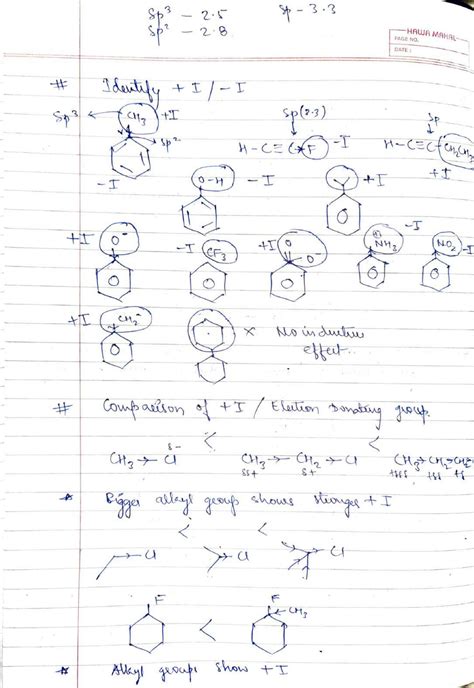 Sp³ - 2.5 Sp - 3.3
Sp² - 2.8
HAWA MAHAL
PAGE NO.
DATE:
# Identify + I / - I
Sp³ CH₃ +I Sp(3.3) Sp
Sp² H-C≡C→F -I H-C≡C-CH₂CH₃
-I O-H -I +I +I
+I O⁻ -I CF₃ +I O O⁻ ⊕NH₃ -I NO₂ -I
+I CH₂⁻ × No inductive
effect..
# Comparison of +I / Election Donating group.
< <
CH₃→Cl δ- CH₃→CH₂→Cl δδ+ δ+ CH₃→CH₂→CH₂ δδδ δδ δ
* Bigger alkyl group shows stronger +I
< <
Cl Cl Cl
F < F CH₃
* Alkyl groups show +I